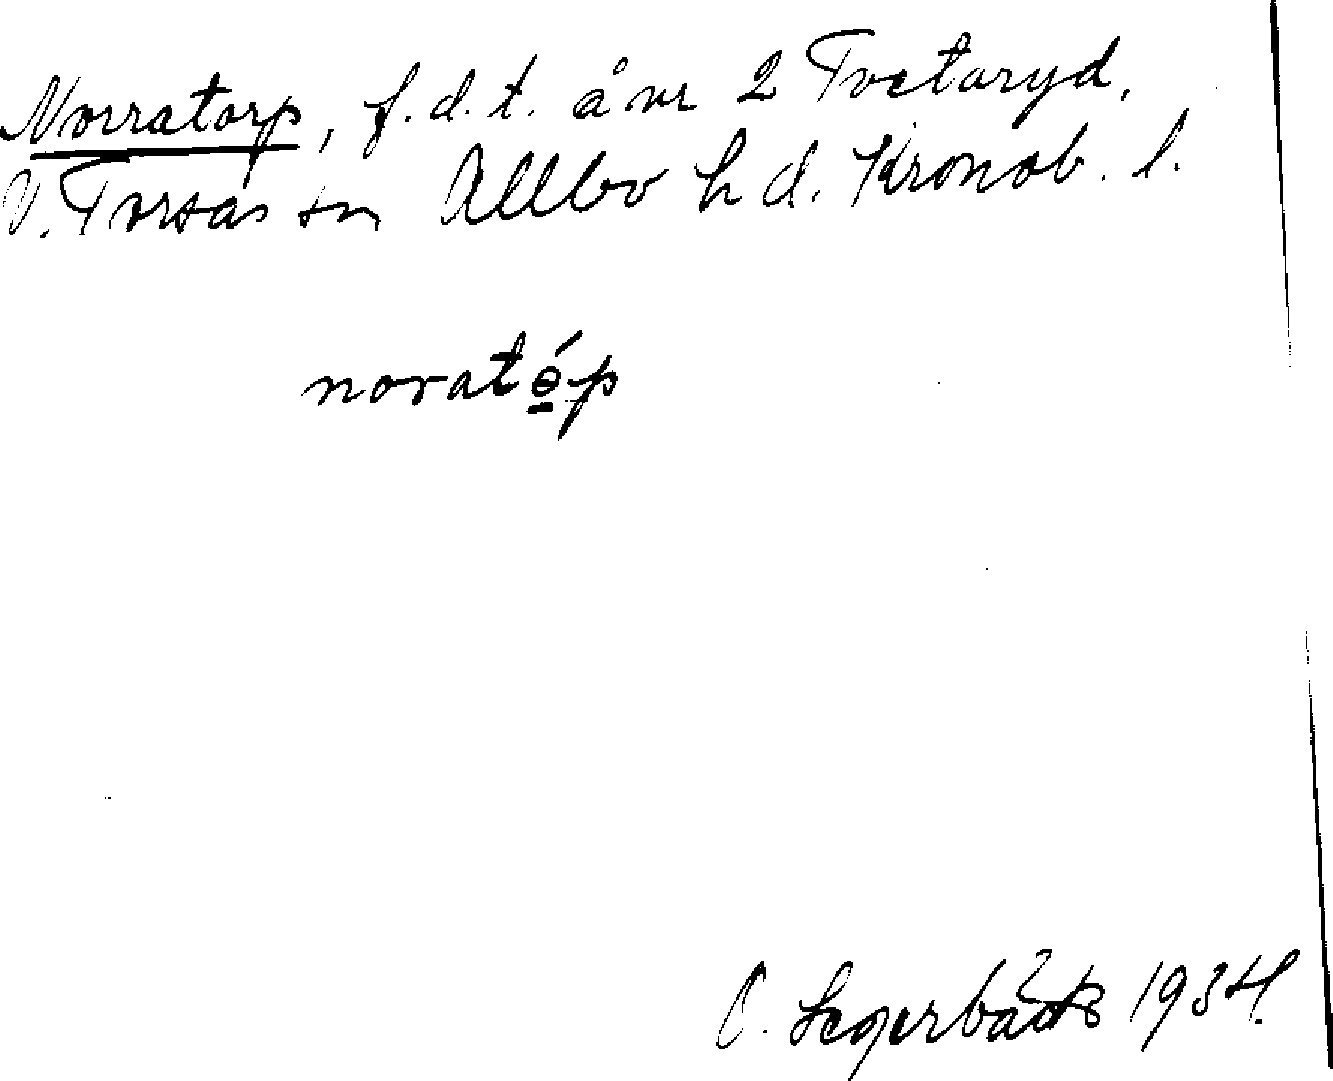 Norratorp, f.d.t. å nr 2 Tvetaryd,
V. Torsås sn Allbo hd. Kronob. l.
noratɵ́p
O. Segerbäck 1934.